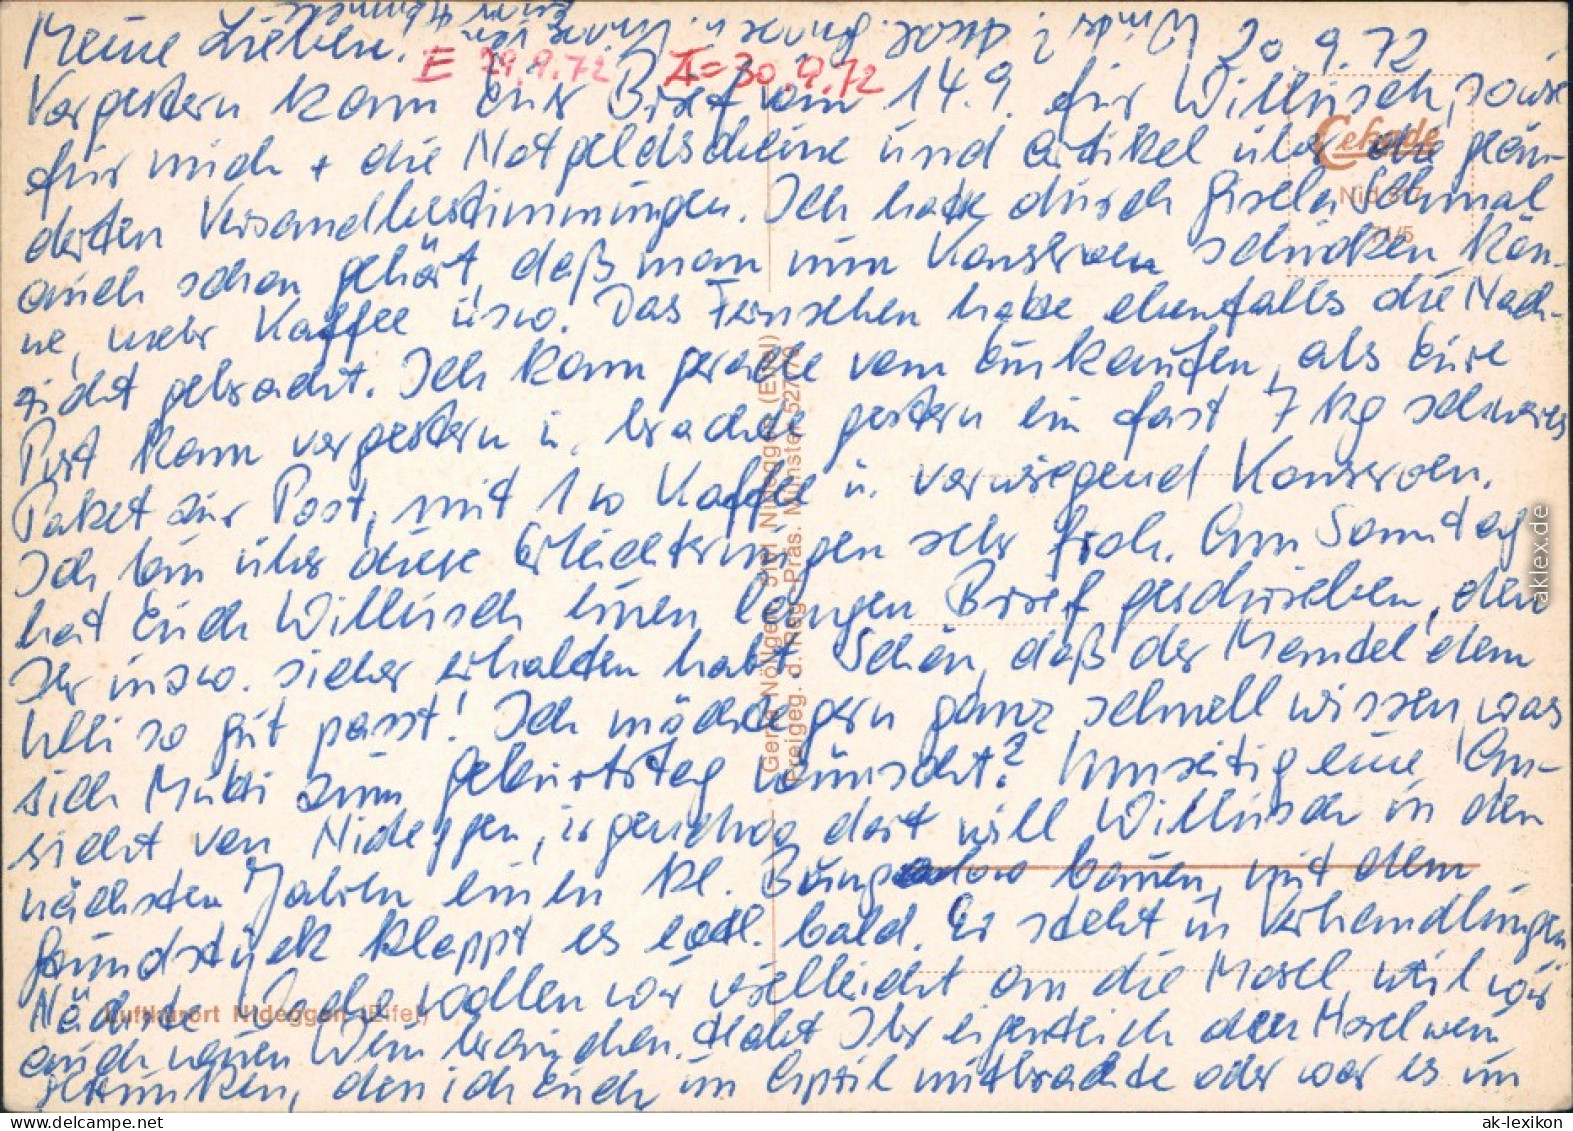 Meine Lieben! 20.9.72
E 29.9.72 Z=30.9.72
Vorgestern kam Euer Brief vom 14.9. für Willusch, sowie
für mich + die Notgeldscheine und Artikel über die geän-
derten Versandbestimmungen. Ich hatte durch Gisela Schmal
auch schon gehört, daß man nun Konserven schicken kön-
ne, mehr Kaffee usw. Das Fernsehen habe ebenfalls die Nach-
richt gebracht. Ich kam gerade vom Einkaufen, als Eure
Post kam vorgestern u. brachte gestern ein fast 7 kg schweres
Paket zur Post, mit Kaffee u. vorwiegend Konserven.
Ich bin über diese Erleichterungen sehr froh. Am Sonntag
hat Euch Willusch einen langen Brief geschrieben, den
Ihr inzw. sicher erhalten habt. Schön, daß der Mantel dem
Ulli so gut passt! Ich möchte gern ganz schnell wissen was
sich Mutti zum Geburtstag wünscht? Umseitig eine An-
sicht von Nideggen, irgendwo dort will Willusch in den
nächsten Jahren einen kl. Bungalow bauen, mit dem
Grundstück klappt es evtl. bald. Er steht in Verhandlungen
Nächste Woche wollen wir vielleicht an die Mosel, weil wir
auch neuen Wein brauchen. Habt Ihr eigentlich den Moselwein
getrunken, den ich Euch im April mitbrachte oder war es im
Cekade
Nid 317
71/5
Gerda Nöttgen, Jivi Nideggen (Eifel)
Freigeg. d. Reg.-Präs. Münster 527/70
Luftkurort Nideggen (Eifel)
aklex.de
ak-lexikon